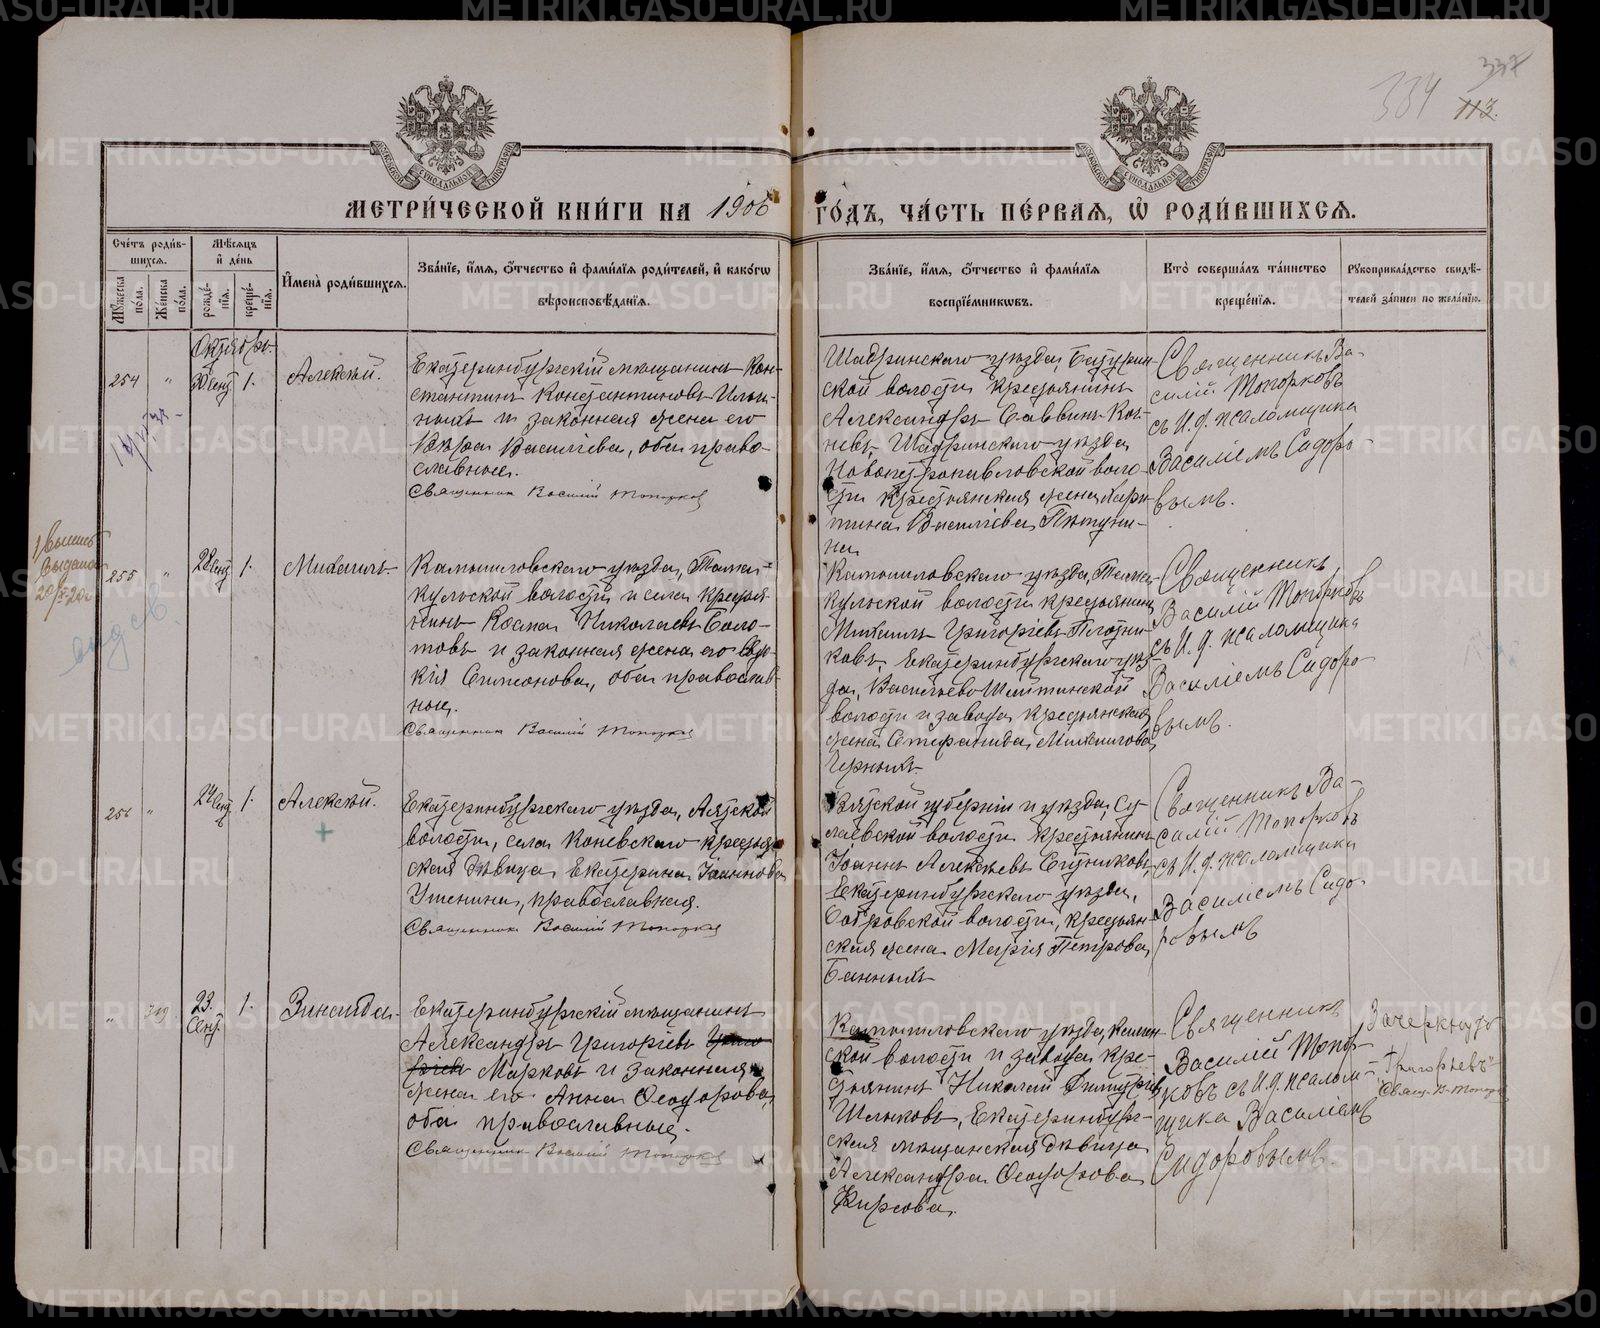 METRIKI.GASO-URAL.RU
334
337
113.
МЕТРИ́ЧЕСКОЙ КНИ́ГИ НА 1906 ГО́ДЪ, ЧА́СТЬ ПЕ́РВАЯ, Ѡ҆ РОДИ́ВШИХСЯ.
Сче́тъ роди́вшихся.
Мꙋ́жеска пола.
Же́нска пола.
Мѣ́сяцъ и҆ де́нь
рожде́нїя.
креще́нїя.
И҆мена̀ роди́вшихся.
Зва́нїе, и҆́мя, ѻ҆́тчество и҆ фами́лїя роди́телей, и҆ како́гѡ
вѣроисповѣ́данїя.
Зва́нїе, и҆́мя, ѻ҆́тчество и҆ фами́лїя
воспрїе́мникѡвъ.
Кто̀ соверша́лъ та́инство
креще́нїя.
Рꙋкоприкла́дство свидѣ́-
телей за́писи по жела́нїю.
Октябрь.
254 " 30 Сент 1. Алексѣй.
Екатеринбургскiй мѣщанинъ Кон-
стантинъ Константиновъ Ильи-
ныхъ и законная жена его
Вѣра Васильева, оба право-
славные.
Священник Василiй Топорков
Шадринскаго уѣзда, Батурин-
ской волости крестьянинъ
Александръ Саввинъ Коч-
невъ, Шадринскаго уѣзда
Новопетропавловской воло-
сти крестьянская жена Хари-
тина Васильева Пѣтуни-
на
Священникъ Ва-
силiй Топорковъ
съ И. д. псаломщика
Василiемъ Сидоро-
вымъ.
255 " 28 Сент 1. Михаилъ.
Камышловскаго уѣзда, Тама-
кульской волости и села крестья-
нинъ Козма Николаевъ Боло-
товъ и законная жена его Евдо-
кiя Симонова, оба православ-
ные.
Священник Василiй Топорков
Камышловскаго уѣзда, Тама-
кульской волости крестьянинъ
Михаилъ Григорiевъ Плотни-
ковъ, Екатеринбургскаго уѣз-
да, Васильево Шайтанской
волости и завода крестьянская
жена Стефанида Михаилова
Черныхъ
Священникъ
Василiй Топорковъ
съ И. д. псаломщика
Василiемъ Сидоро-
вымъ.
256 " 24 Сент 1. Алексѣй.
Екатеринбургскаго уѣзда, Аятской
волости, села Коневскаго крестьян-
ская дѣвица Екатерина Iоаннова
Ушенина, православная.
Священник Василiй Топорков
Вятской губернiи и уѣзда, Су-
наевской волости крестьянинъ
Iоаннъ Алексѣевъ Ситниковъ,
Екатеринбургскаго уѣзда,
волости, крестьян-
ская жена Марiя Петрова
Банныхъ
Священникъ Ва-
силiй Топорковъ
съ И. д. псаломщика
Василiемъ Сидо-
ровымъ
" 23. Сент. 1. Зинаида.
Екатеринбургскiй мѣщанинъ
Александръ Григорiевъ
Марковъ и законная
жена его Анна Ѳеодорова,
оба православные.
Священник Василiй Топорков
Камышловскаго уѣзда, Камен-
ской волости и завода кре-
стьянинъ Николай Димитрiевъ
Шаньковъ, Екатеринбург-
ская мѣщанская дѣвица
Александра Ѳеодорова
Фирсова.
Священникъ
Василiй Топор-
ковъ съ И. д. псалом-
щика Василiемъ
Сидоровымъ.
Зачеркнуто
"Григорьевъ"
Свящ. В. Топорков